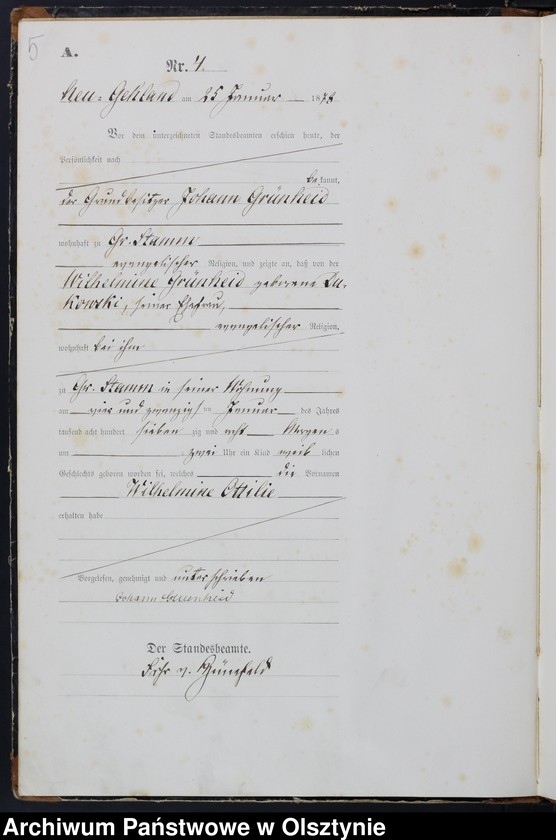 5
A.
Nr. 4.
Neu-Gehland am 25 Januar 1878
Vor dem unterzeichneten Standesbeamten erschien heute, der
Persönlichkeit nach
be kannt,
der Grundbesitzer Johann Grünheid
wohnhaft zu Gr. Stamm
evangelischer Religion, und zeigte an, daß von der
Wilhelmine Grünheid geborene
kowski, seiner Ehefrau,
evangelischer Religion,
wohnhaft bei ihm
zu Gr. Stamm in seiner Wohnung
am vier und zwanzigsten Januar des Jahres
tausend acht hundert sieben zig und acht Morgens
um zwei Uhr ein Kind weib lichen
Geschlechts geboren worden sei, welches die Vornamen
Wilhelmine Ottilie
erhalten habe
Vorgelesen, genehmigt und unterschrieben
Johann
Der Standesbeamte.
v.
Archiwum Państwowe w Olsztynie